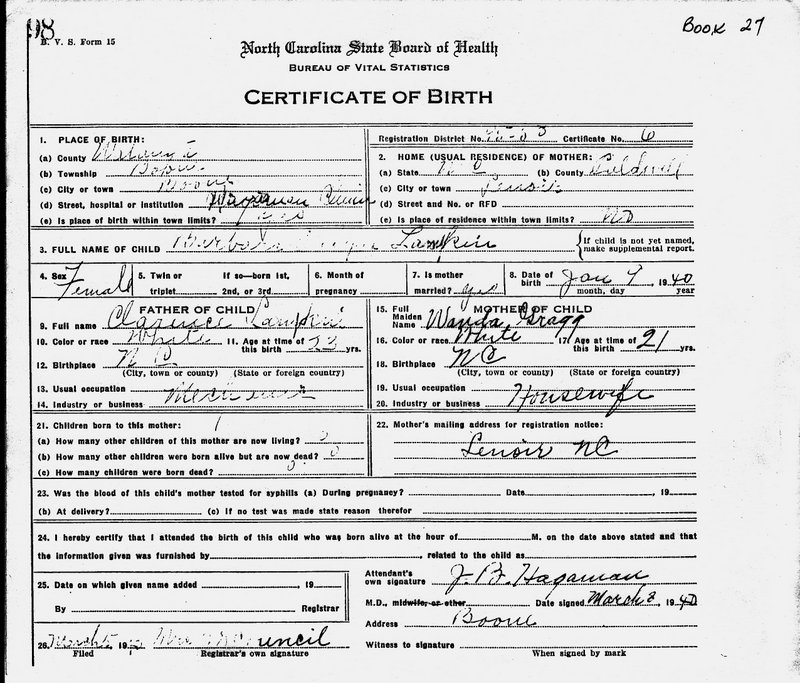 98
B. V. S. Form 15
Book 27
North Carolina State Board of Health
BUREAU OF VITAL STATISTICS
CERTIFICATE OF BIRTH
1. PLACE OF BIRTH:
Registration District No. Certificate No. 6
(a) County Watauga
(b) Township Boone
(c) City or town Boone
(d) Street, hospital or institution Hagaman Clinic
(e) Is place of birth within town limits? yes
2. HOME (USUAL RESIDENCE) OF MOTHER:
(a) State N C (b) County Caldwell
(c) City or town Lenoir
(d) Street and No. or RFD
(e) Is place of residence within town limits? No
3. FULL NAME OF CHILD Barbara Lampkin
If child is not yet named, make supplemental report.
4. Sex Female
5. Twin or triplet If so—born 1st, 2nd, or 3rd
6. Month of pregnancy
7. Is mother married? yes
8. Date of birth Jan 9 1940
month, day year
FATHER OF CHILD
9. Full name Clarence Lampkin
10. Color or race White 11. Age at time of this birth yrs.
12. Birthplace N C
(City, town or county) (State or foreign country)
13. Usual occupation
14. Industry or business Mechanic
MOTHER OF CHILD
15. Full Maiden Name Wanda Gragg
16. Color or race White 17. Age at time of this birth 21 yrs.
18. Birthplace NC
(City, town or county) (State or foreign country)
19. Usual occupation
20. Industry or business Housewife
21. Children born to this mother: 1
(a) How many other children of this mother are now living? 0
(b) How many other children were born alive but are now dead? 0
(c) How many children were born dead? 0
22. Mother's mailing address for registration notice:
Lenoir NC
23. Was the blood of this child's mother tested for syphilis (a) During pregnancy? Date , 19
(b) At delivery? (c) If no test was made state reason therefor
24. I hereby certify that I attended the birth of this child who was born alive at the hour of M. on the date above stated and that
the information given was furnished by , related to the child as
25. Date on which given name added , 19
By Registrar
Attendant's own signature J. B. Hagaman
M.D., midwife, or other Date signed March 2, 1940
Address Boone
26. , 19 Mrs Council
Filed Registrar's own signature
Witness to signature
When signed by mark